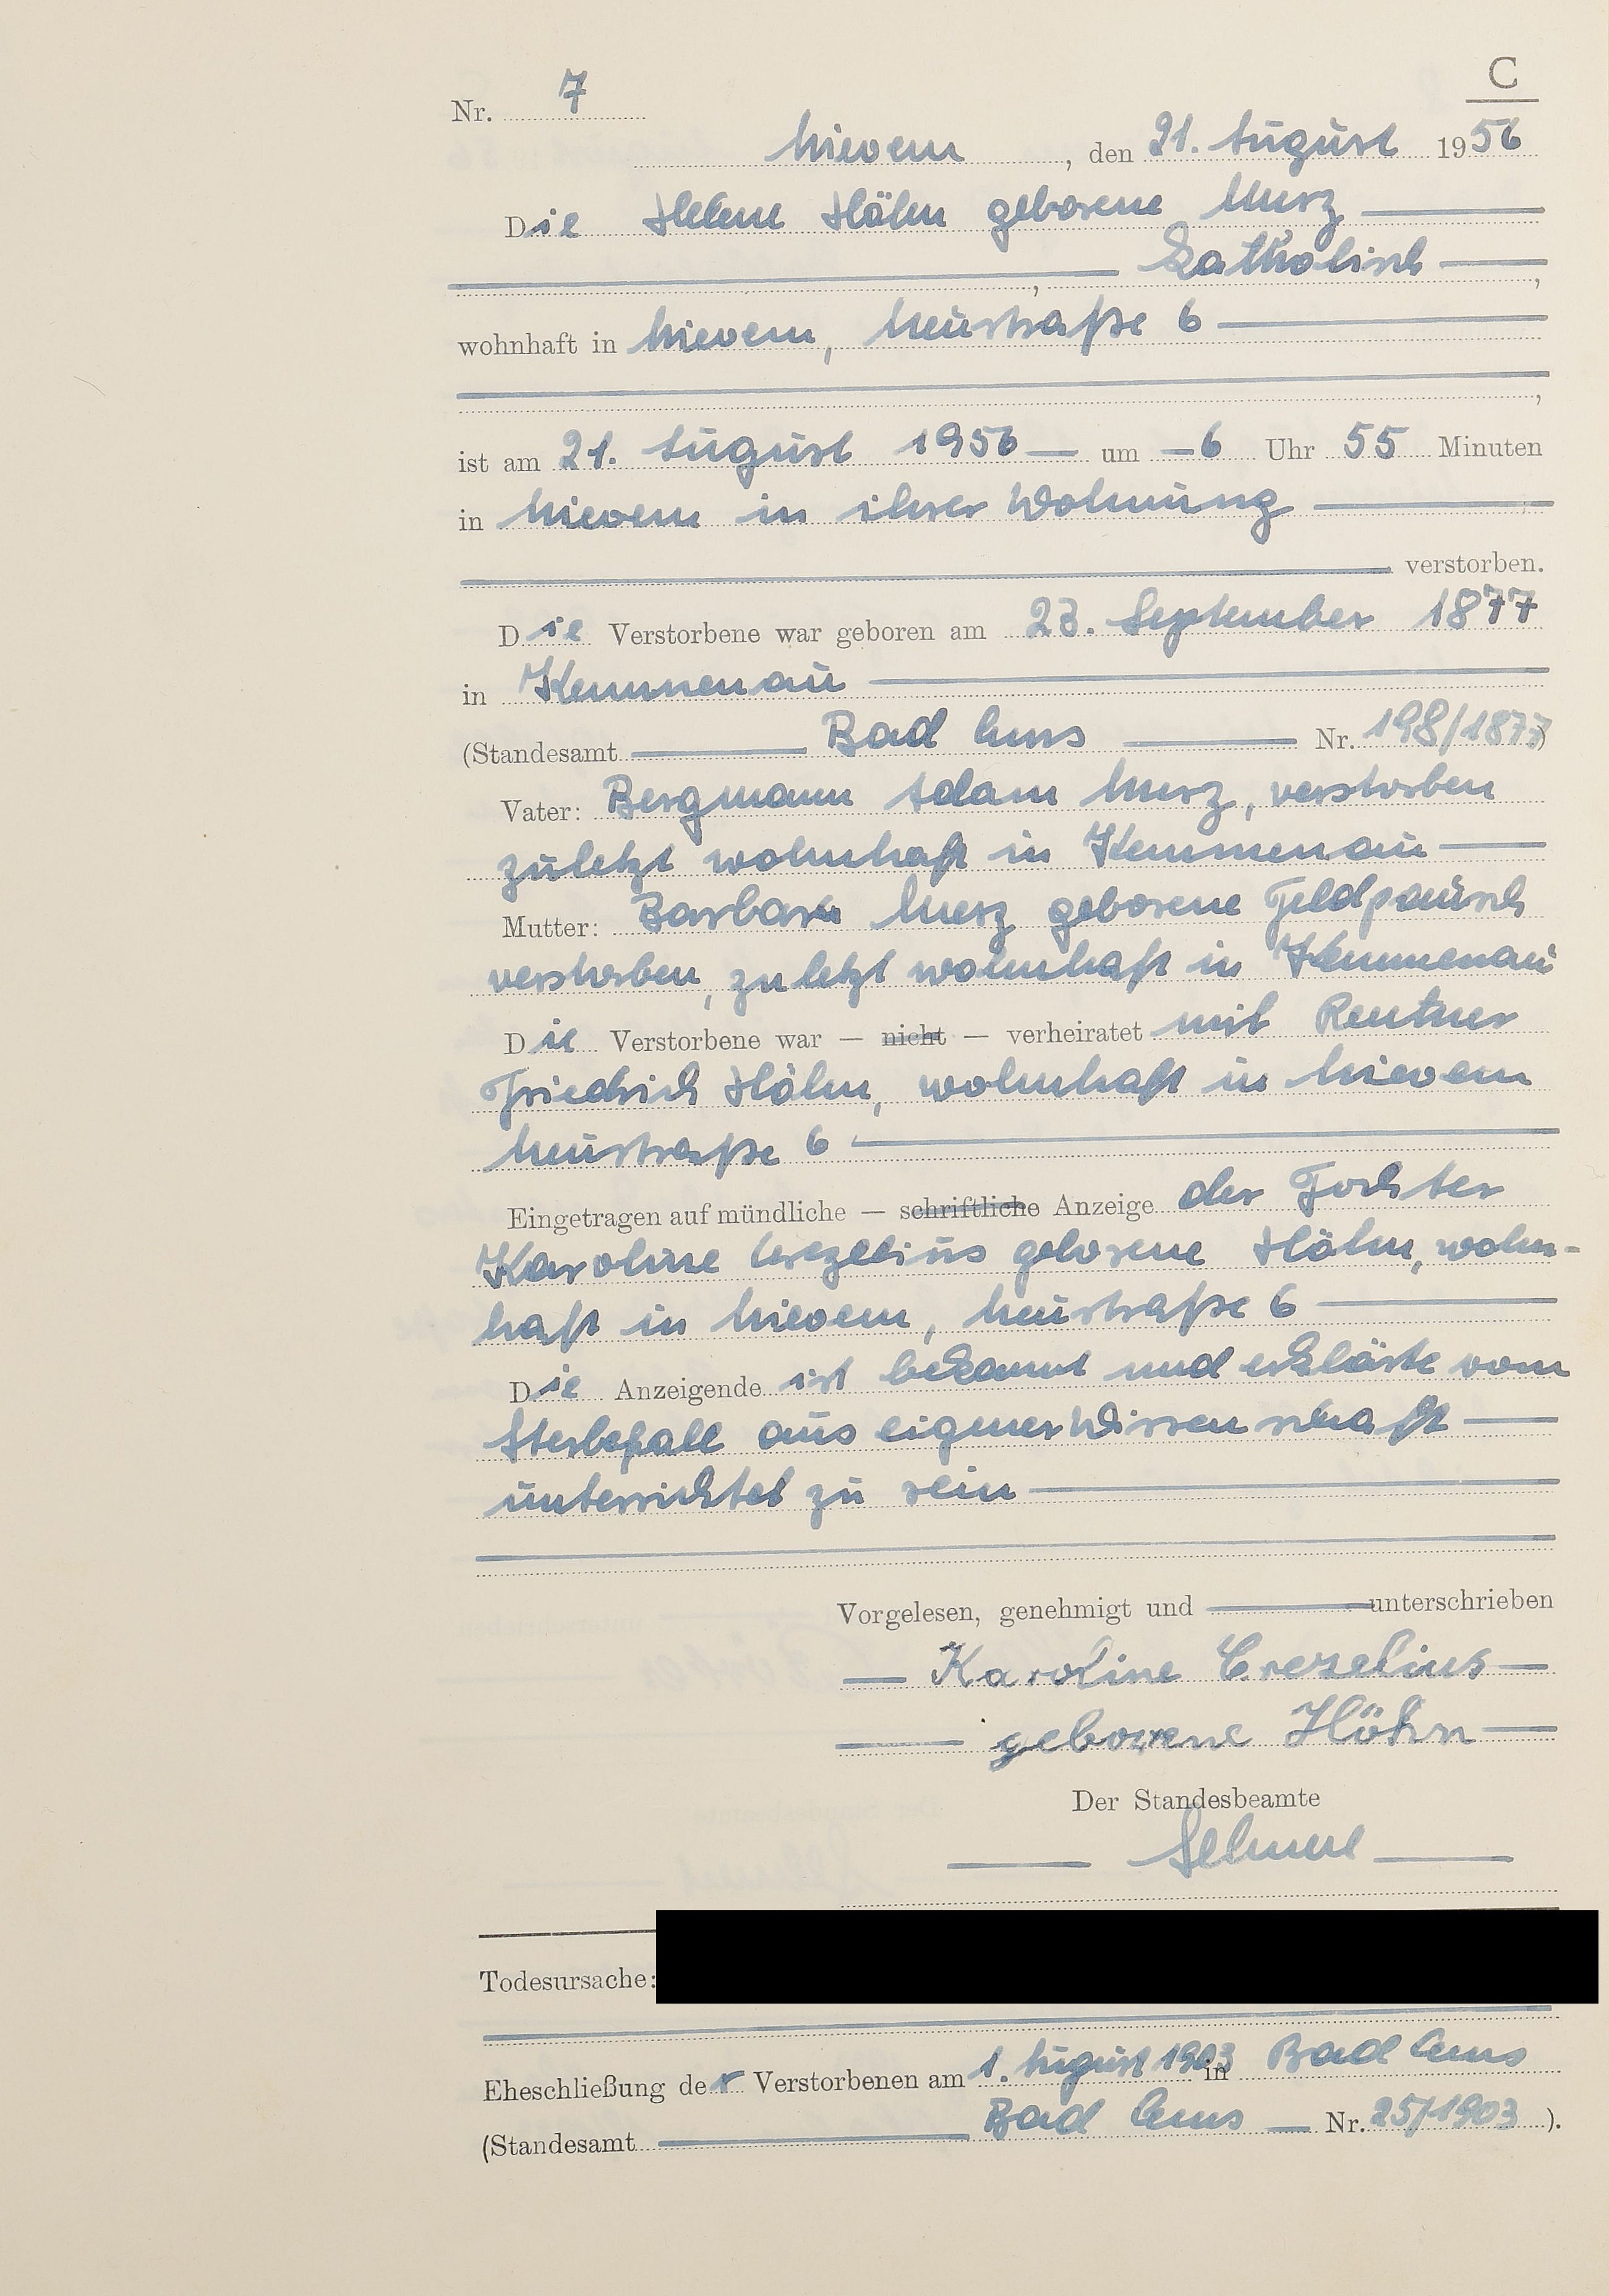 C
Nr. 7
Nievern, den 21. August 1956
Die Helene Höhn geborene Merz
, katholisch,
wohnhaft in Nievern, Neustraße 6
,
ist am 21. August 1956 um 6 Uhr 55 Minuten
in Nievern in ihrer Wohnung
verstorben.
Die Verstorbene war geboren am 23. September 1877
in Kemmenau
(Standesamt Bad Ems Nr. 198/1877)
Vater: Bergmann Adam Merz, verstorben
zuletzt wohnhaft in Kemmenau
Mutter: Barbara Merz geborene Feldpausch
verstorben, zuletzt wohnhaft in Kemmenau
Die Verstorbene war — nicht — verheiratet mit Rentner
Friedrich Höhn, wohnhaft in Nievern
Neustraße 6
Eingetragen auf mündliche — schriftliche Anzeige der Tochter
Karoline Crezelius geborene Höhn, wohn-
haft in Nievern, Neustraße 6
Die Anzeigende ist bekannt und erklärte vom
Sterbefall aus eigener Wissenschaft
unterrichtet zu sein
Vorgelesen, genehmigt und unterschrieben
Karoline Crezelius
geborene Höhn
Der Standesbeamte
Todesursache:
Eheschließung der Verstorbenen am 1. August 1903 in Bad Ems
(Standesamt Bad Ems — Nr. 25/1903).